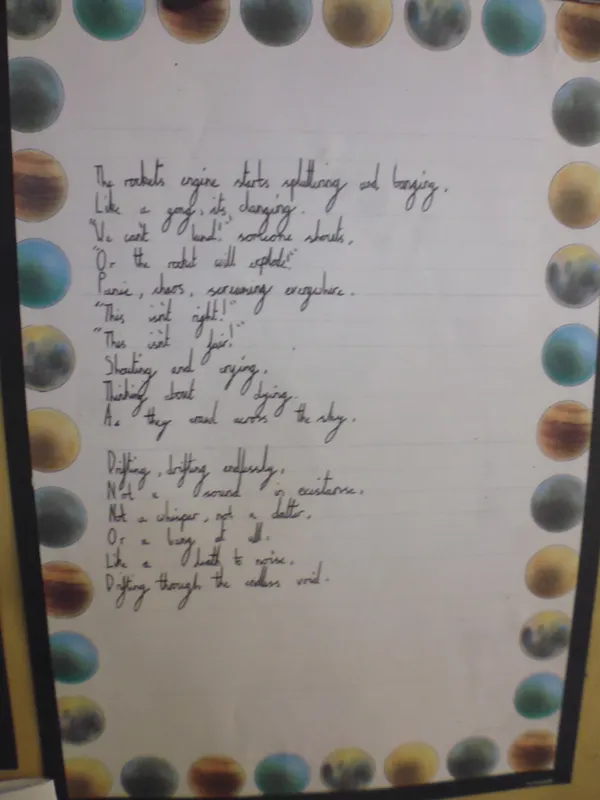 The rockets engine starts spluttering and banging.
Like a gong, its, clanging.
"We can't land!" someone shouts.
"Or the rocket will explode!"
Panic, chaos, screaming everywhere.
"This isn't right!"
"This isn't fair!"
Shouting and crying.
Thinking about dying.
As they crawl across the sky.
Drifting, drifting endlessly.
Not a sound in existanse.
Not a whisper, not a clatter.
Or a bang at all.
Like a death to noise.
Drifting through the endless void.